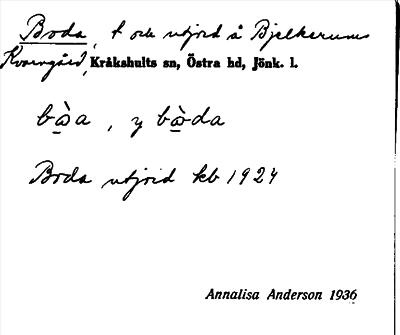 Boda, t och utjord å Bjelkerums
Kvarngård, Kråkshults sn, Östra hd, Jönk. l.
bὼa, y bὼda
Boda utjord kb 1924
Annalisa Anderson 1936